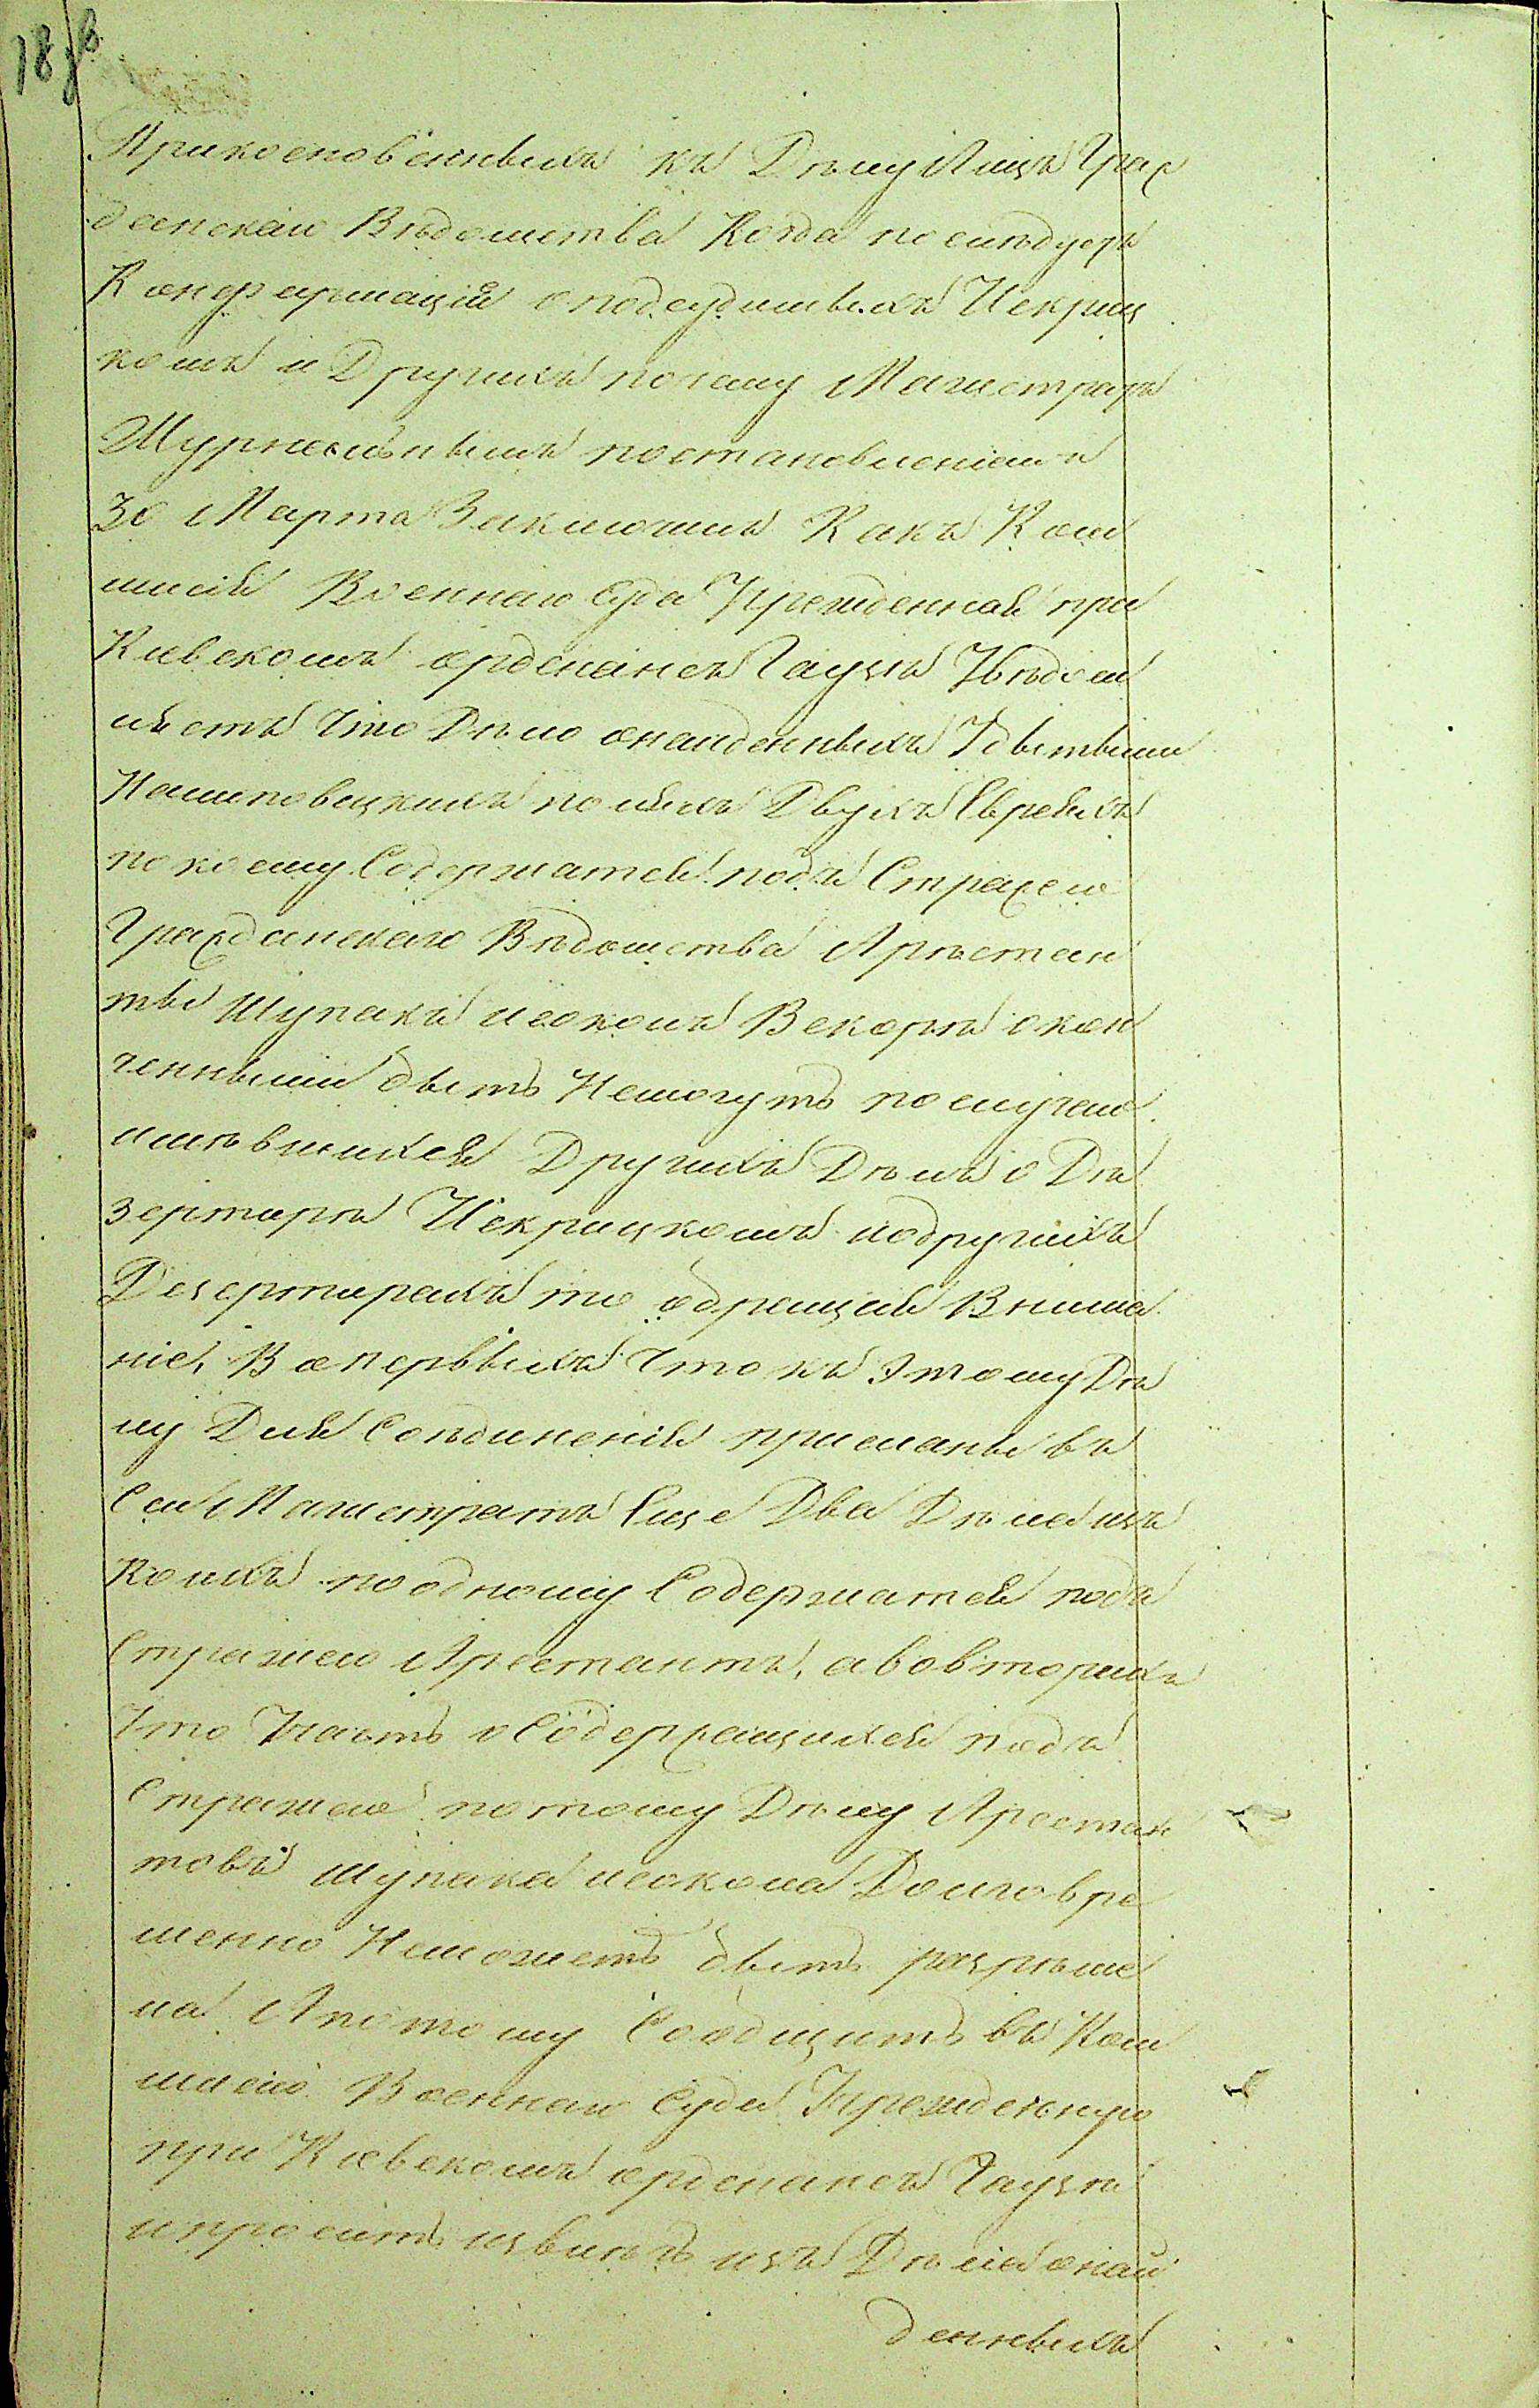 18 об
Прикосновенныхъ къ Дѣлу Лицъ Граж
данскаго Вѣдомства Когда послѣдуетъ
Конфирмація о подсудимыхъ Некриц
комъ и Другихъ почему Магистратъ
Журнальнымъ постановленіемъ
30 Марта Заключилъ Какъ Ком
мисія Военнаго Суда Учрежденная при
Киевскомъ орденансъ Гаузѣ Увѣдом
ляетъ что Дѣло онайденныхъ Убитыми
поляхъ Двухъ Евреяхъ
по коему Содержатся подъ Стражею
Гражданскаго Вѣдомства Арестан
ты Шупакъ исоколъ Вскорѣ окон
ченными быть Немогутъ послучаю
имѣвшихся Другихъ Дѣлъ о Де
зертирѣ Некрицкомъ иодругихъ
Дезертирахъ то обращая Внима
ніе, Вопервыхъ что къ Этому Дѣ
лу Для Соединенія присланы въ
Сей Магистратъ Еще Два Дѣла изъ
коихъ поодному Содержатся подъ
Стражею Арестантъ, а вовторыхъ
что Участь о Содержащихся подъ
Стражею потому Дѣлу Арестан
товъ шупака исокола Долговре
менно Неможетъ быть разрѣше
на Апотому Сообщить въ Ком
мисію Военнаго Суда Учрежденную
при Киевскомъ орденансъ Гаузѣ
ипросить изъ Дѣла онай
денныхъ